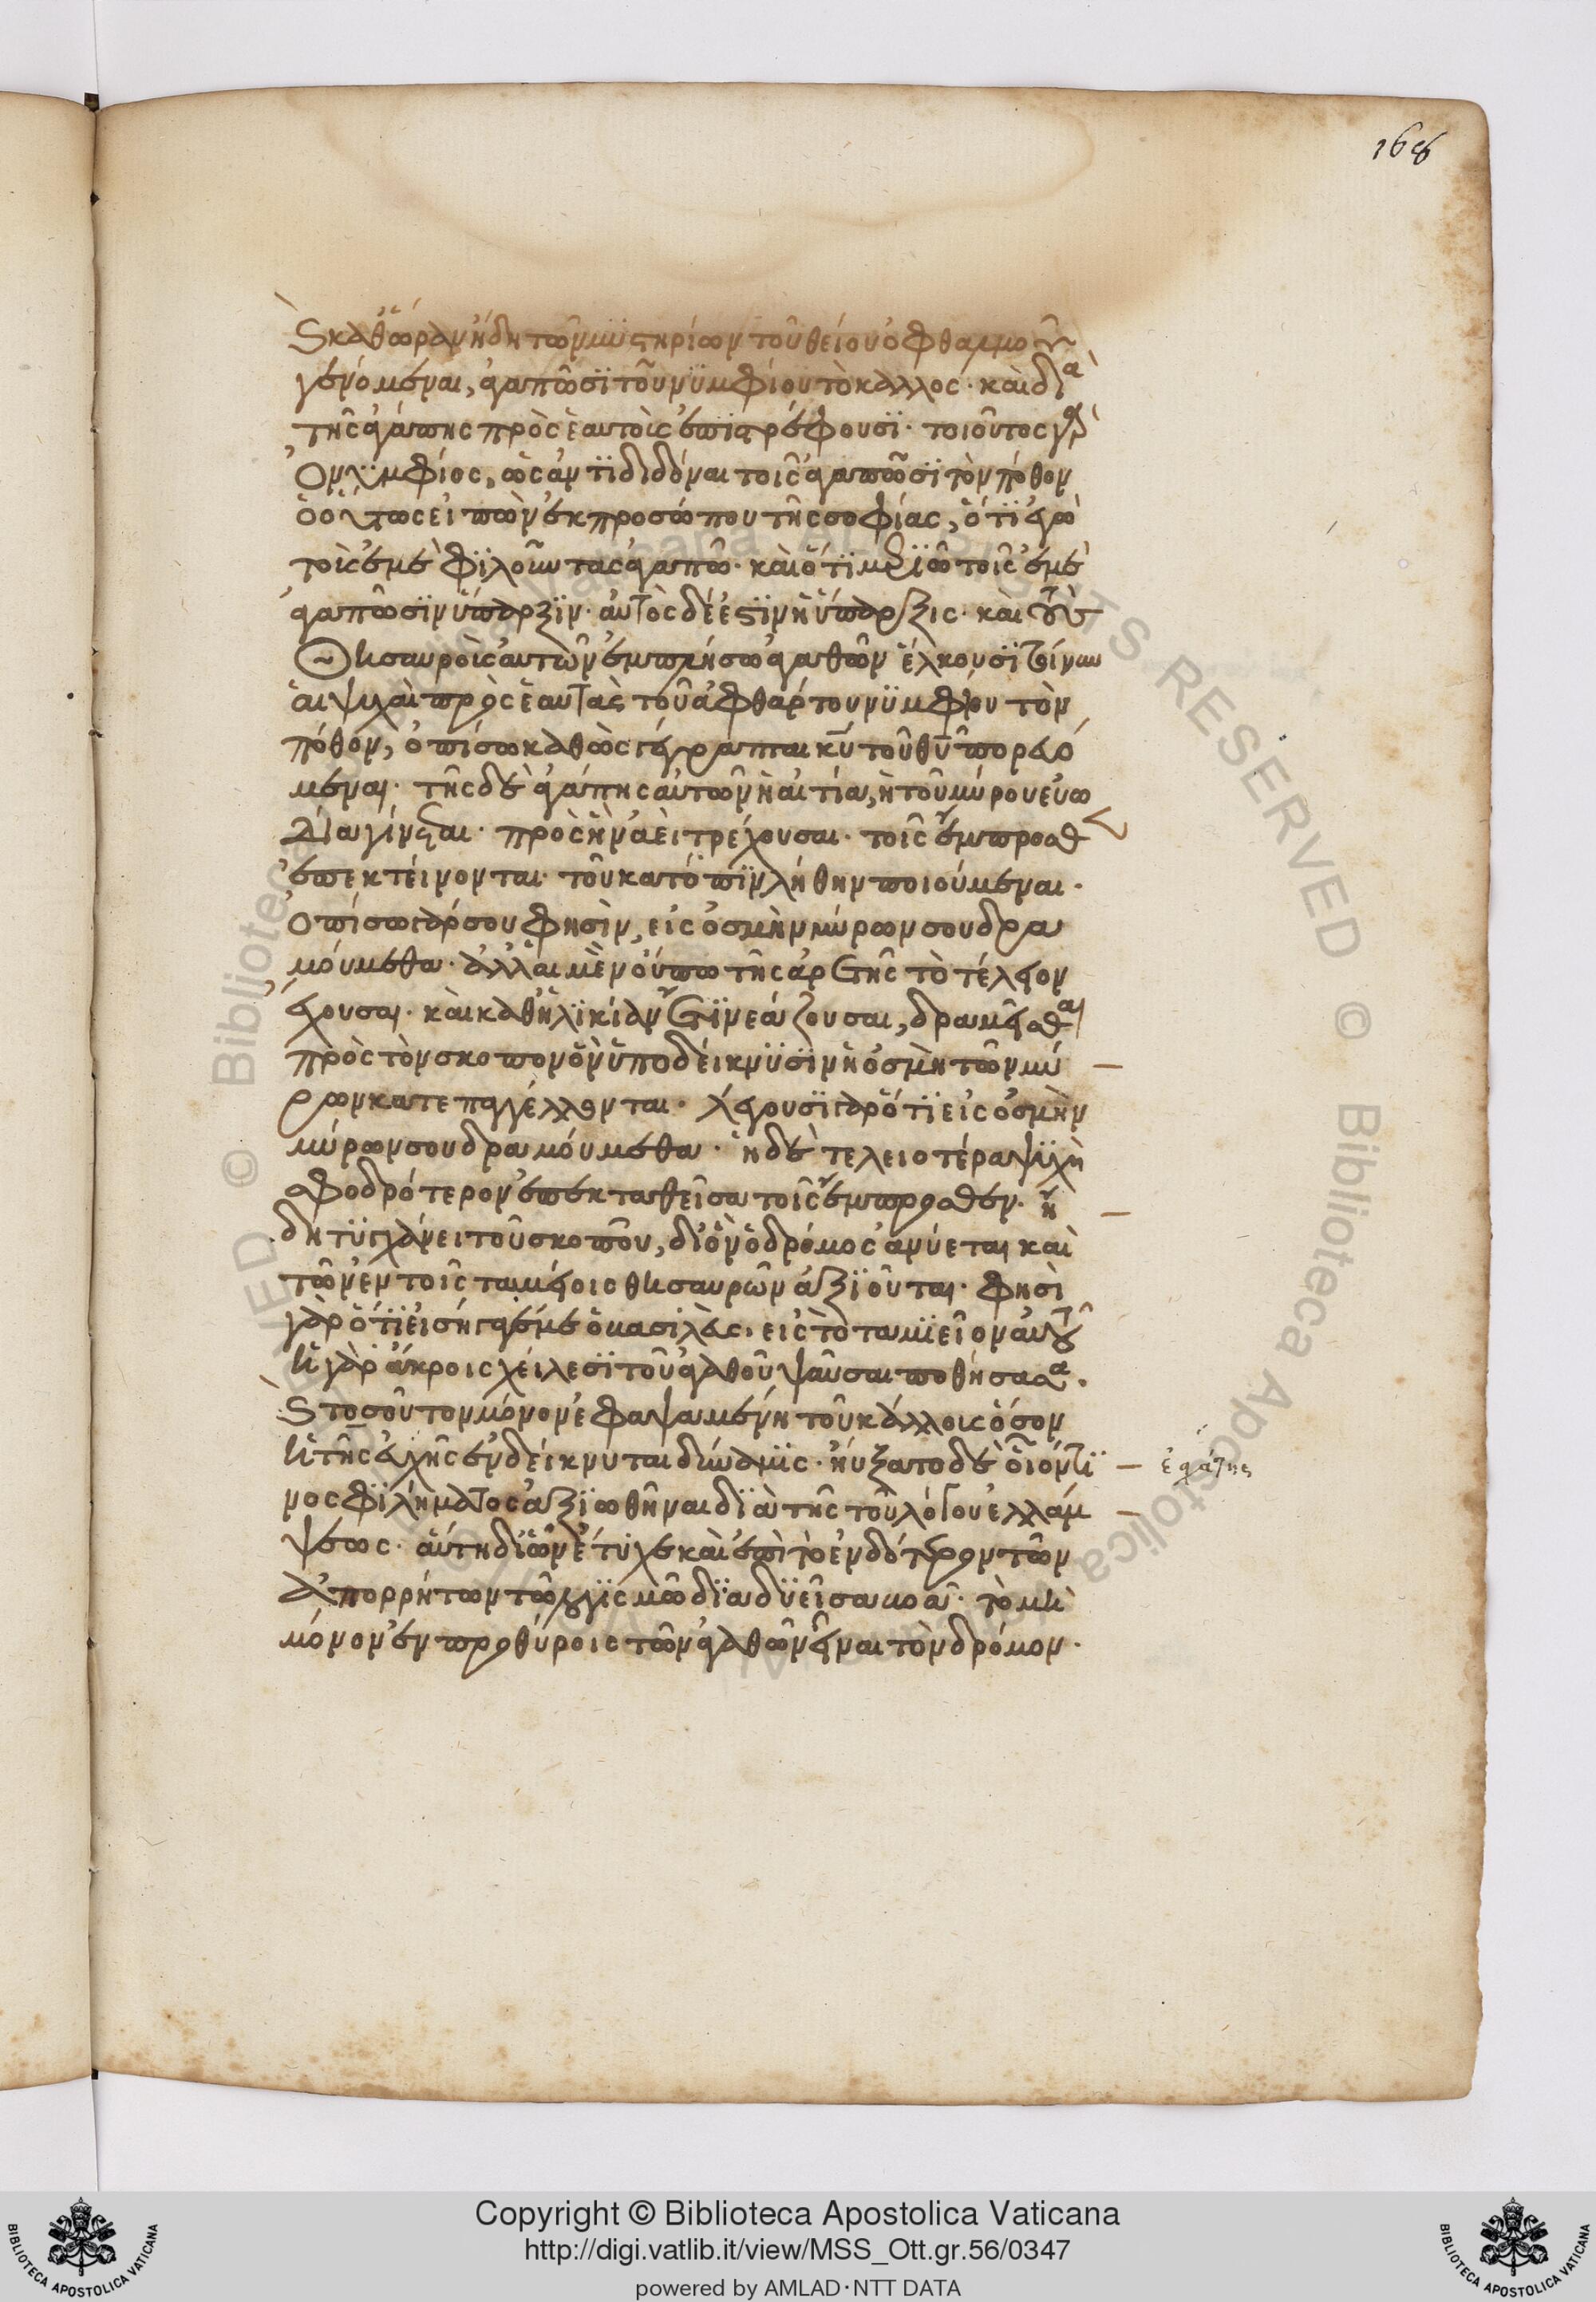 168
καθῶραν ἤδη τῶν μυστηρίων τοῦ θείου ὀφθαλμοῦ
γενόμεναι, ἀγαπῶσι τοῦ νυμφίου τὸ κάλλος· καὶ διὰ
τῆς ἀγάπης πρὸς ἑαυτοὺς ἐπιστρέφουσι· τοιοῦτος γὰρ
ὁ νυμφίος, ὡς ἀντιδιδόναι τοῖς ἀγαπῶσι τὸν πόθον
ὁ οὕτως εἰπὼν ἐκ προσώπου τῆς σοφίας, ὅτι ἐγὼ
τοὺς ἐμὲ φιλοῦντας ἀγαπῶ· καὶ ὅτι μεριῶ τοῖς ἐμὲ
ἀγαπῶσιν ὕπαρξιν· αὐτὸς δέ ἐστιν ἡ ὕπαρξις· καὶ τοὺς
θησαυροὺς αὐτῶν ἐμπλήσω ἀγαθῶν ἕλκουσι τοίνυν
αἱ ψυχαὶ πρὸς ἑαυτὰς τοῦ ἀφθάρτου νυμφίου τὸν
πόθον, ὀπίσω καθὼς γέγραπται κυ τοῦ θυ πορευό
μεναι· τῆς δὲ ἀγάπης αὐτῶν ἡ αἰτία, ἡ τοῦ μύρου εὐω
δία γίνεται· πρὸς ἣν ἀεὶ τρέχουσαι· τοῖς ἔμπροσθ
ἐπεκτείνονται· τοῦ κατόπιν λήθην ποιούμεναι·
ὀπίσω γάρ σου φησὶν, εἰς ὀσμὴν μύρων σου δρα
μούμεθα· ἀλλ' αἱ μὲν οὔπω τῆς ἀρετῆς τὸ τέλειον
ἔχουσαι· καὶ καθ' ἡλικίαν ἔτι νεάζουσαι, δραμεῖσθαι
πρὸς τὸν σκοπον ὃν ὑποδείκνυσιν ἡ ὀσμὴ τῶν μύ
ρων κατεπαγγέλλονται· λέγουσι γὰρ ὅτι εἰς ὀσμὴν
μύρων σου δραμούμεθα· ἡ δὲ τελειοτέρα ψυχὴ
σφοδρότερον ἐπεκταθεῖσα τοῖς ἔμπροσθεν· ἤ
δη τυγχάνει τοῦ σκοποῦ, δι' ὃν ὁ δρόμος ἀνύεται καὶ
τῶν ἐν τοῖς ταμείοις θησαυρῶν ἀξιοῦται· φησὶ
γὰρ ὅτι εἰσήγαγέ με ὁ βασιλεὺς, εἰς τὸ ταμιεῖον αὐτοῦ
ἡ γὰρ ἄκροις χείλεσι τοῦ ἀγαθοῦ ψαῦσαι ποθήσασα·
τοσοῦτον μόνον ἐφαψαμένη τοῦ κάλλους ὅσον
ἡ τῆς εὐχῆς ἐνδείκνυται δύναμις· ηὔξατο δὲ οἷόν τι
νος φιλήματος ἀξιωθῆναι διὰ τῆς τοῦ λόγου ἐλλάμ
ψεως· αὕτη δι' ὧν ἔτυχε καὶ ἐπὶ τὸ ἐνδότερον τῶν
ἀπορρήτων τῷ λογισμῷ διαδυεῖσα βοᾷ· τὸ μὴ
μόνον ἐν προθύροις τῶν ἀγαθῶν εἶναι τὸν δρόμον·
Copyright © Biblioteca Apostolica Vaticana
http://digi.vatlib.it/view/MSS_Ott.gr.56/0347
powered by AMLAD·NTT DATA